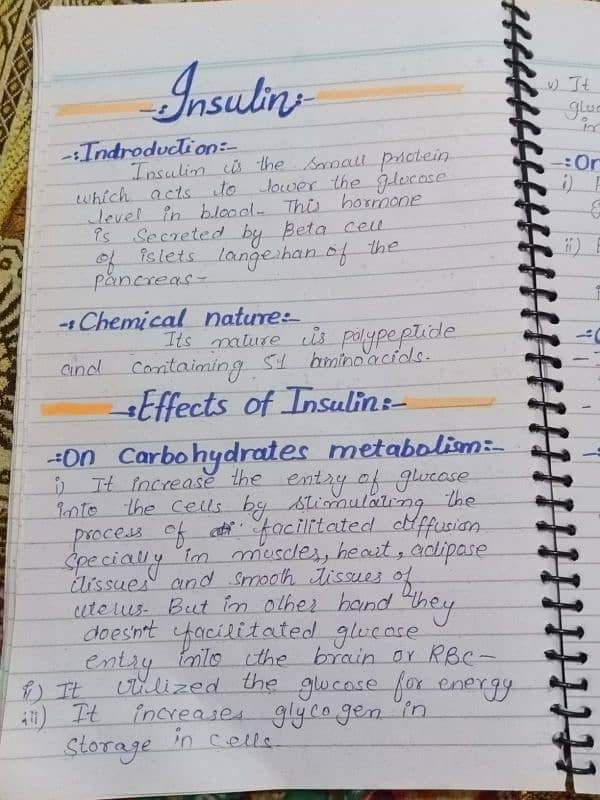 -: Insulin:-
-:Indroduction:-
Insulin is the small protein
which acts to lower the glucose
level in blood- This hormone
is secreted by Beta cell
of islets langerhan of the
pancreas-
-: Chemical nature:-
Its nature is polypeptide
and containing 51 aminoacids.
-:Effects of Insulin:-
-:On Carbohydrates metabolism:-
i) It increase the entry of glucose
into the cells by stimulating the
process of facilitated diffusion
specially in muscles, heart, adipose
tissues and smooth tissues of
uterus- But in other hand they
doesn't facilitated glucose
entry into the brain or RBC-
ii) It utilized the glucose for energy
iii) It increases glycogen in
storage in cells-
v) It
gluc
in
-:On
i)
ii)